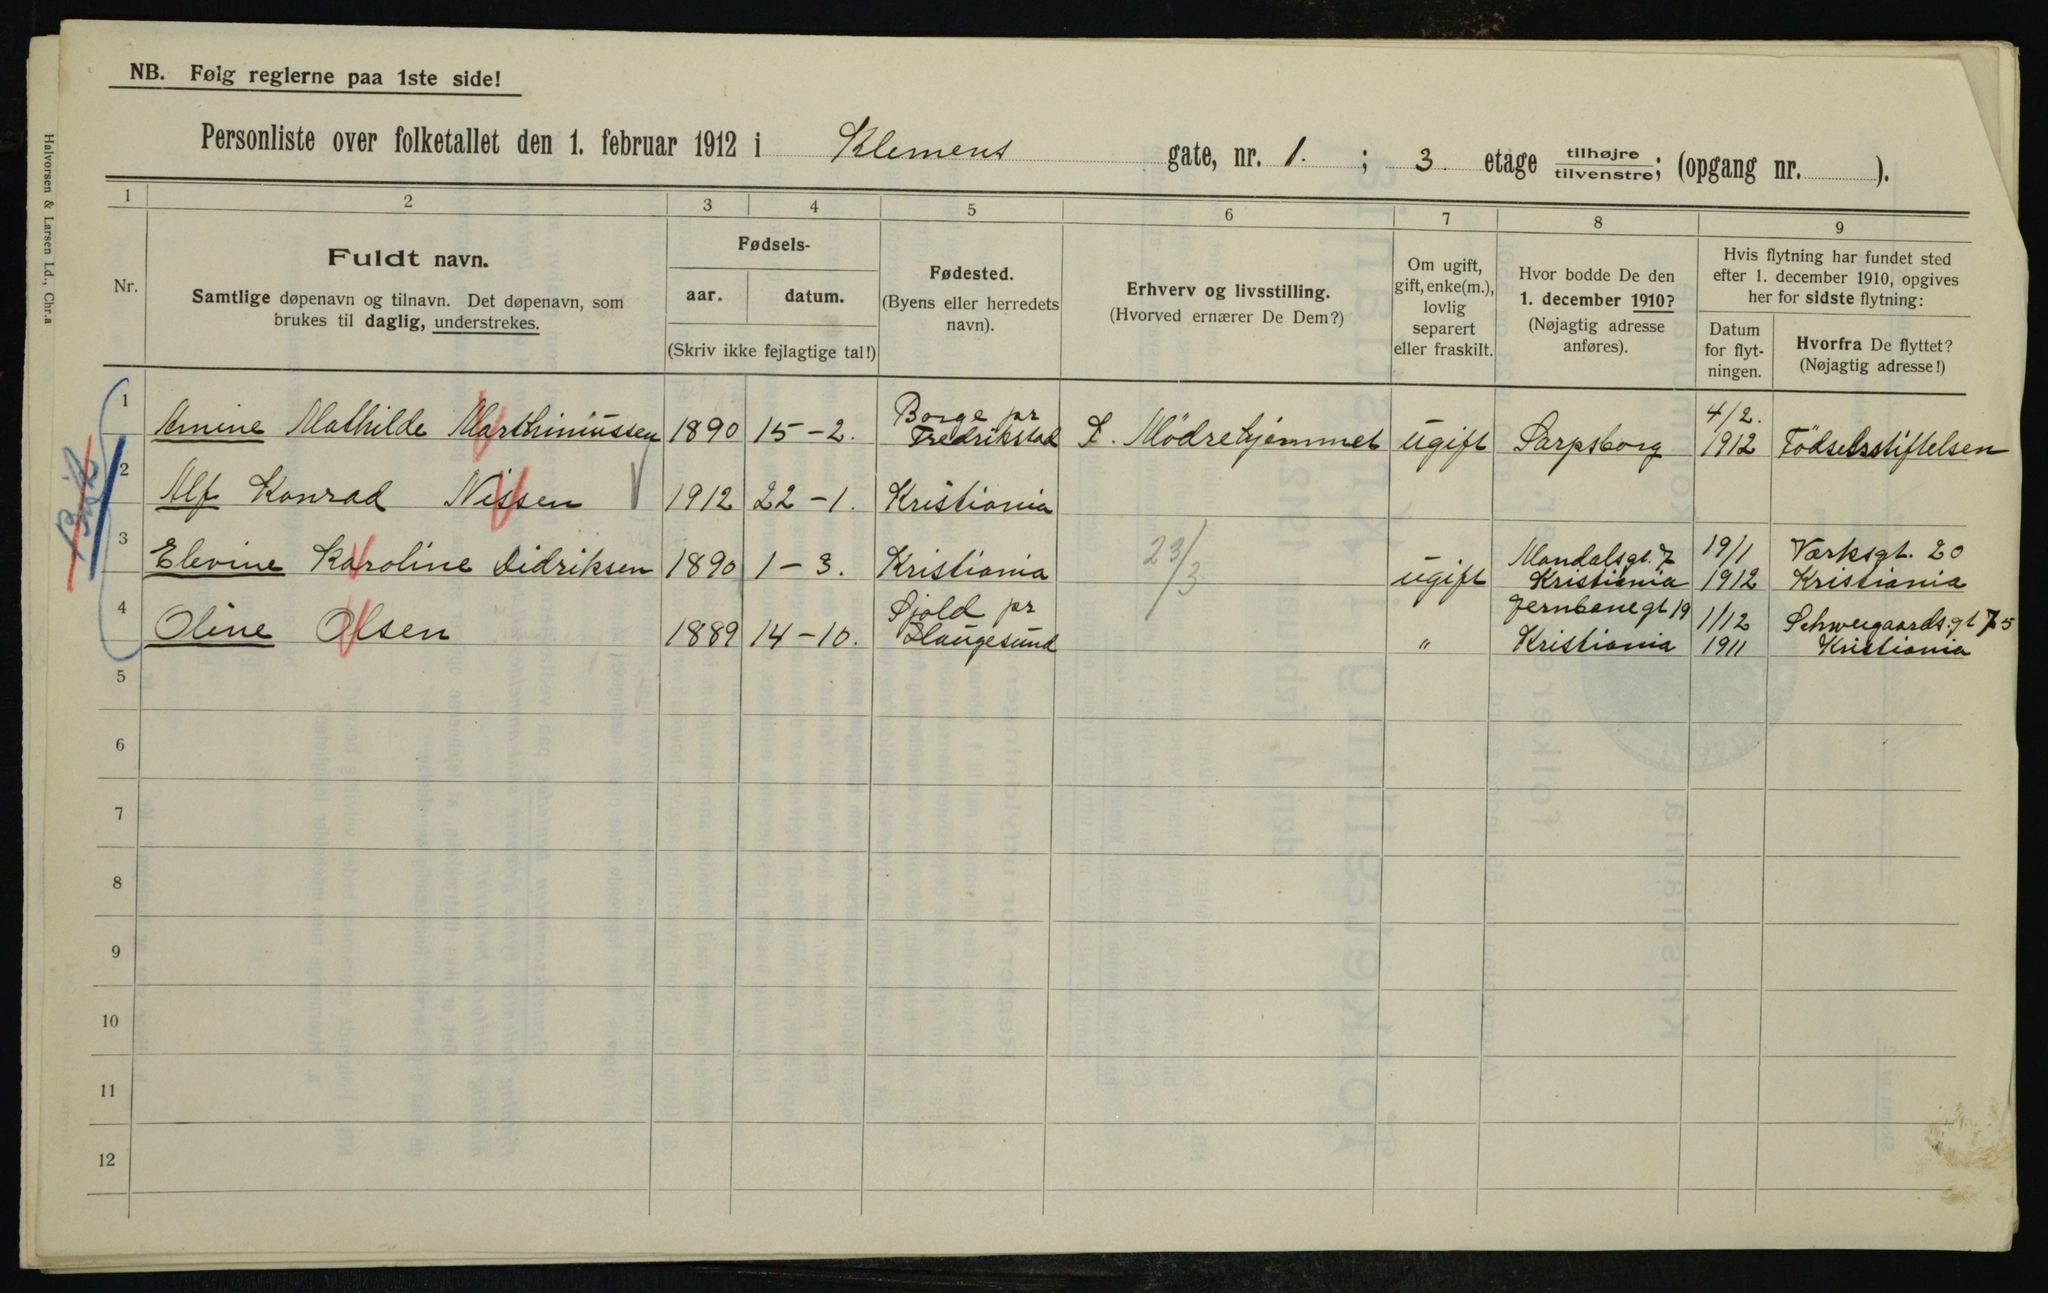 NB. Følg reglerne paa 1ste side!
Personliste over folketallet den 1. februar 1912 i Klemens gate, nr. 1. ; 3 etage tilhøjre/tilvenstre; (opgang nr. ).
1 2 3 4 5 6 7 8 9
Nr.
Fuldt navn.
Samtlige døpenavn og tilnavn. Det døpenavn, som
brukes til daglig, understrekes.
Fødsels-
aar. datum.
(Skriv ikke fejlagtige tal!)
Fødested.
(Byens eller herredets
navn).
Erhverv og livsstilling.
(Hvorved ernærer De Dem?)
Om ugift,
gift, enke(m.),
lovlig
separert
eller fraskilt.
Hvor bodde De den
1. december 1910?
(Nøjagtig adresse
anføres).
Hvis flytning har fundet sted
efter 1. december 1910, opgives
her for sidste flytning:
Datum
for flyt-
ningen.
Hvorfra De flyttet?
(Nøjagtig adresse!)
1 Amine Mathilde Marthiniussen 1890 15-2. Borge pr Fredrikstad L. Mödrehjemmet ugift Sarpsborg 4/2. 1912 Födselsstiftelsen
2 Alf Konrad Nissen 1912 22-1. Kristiania
3 Elevine Karoline Didriksen 1890 1-3. Kristiania 23/3 ugift Mandalsgt. 7 Kristiania 19/1 1912 Værksgt. 20 Kristiania
4 Oline Olsen 1889 14-10. Sjold pr Haugesund " Jernbanegt 19 Kristiania 1/12 1911 Schweigaardsgt 75 Kristiania
5
6
7
8
9
10
11
12
Halvorsen & Larsen Ld., Chr.a